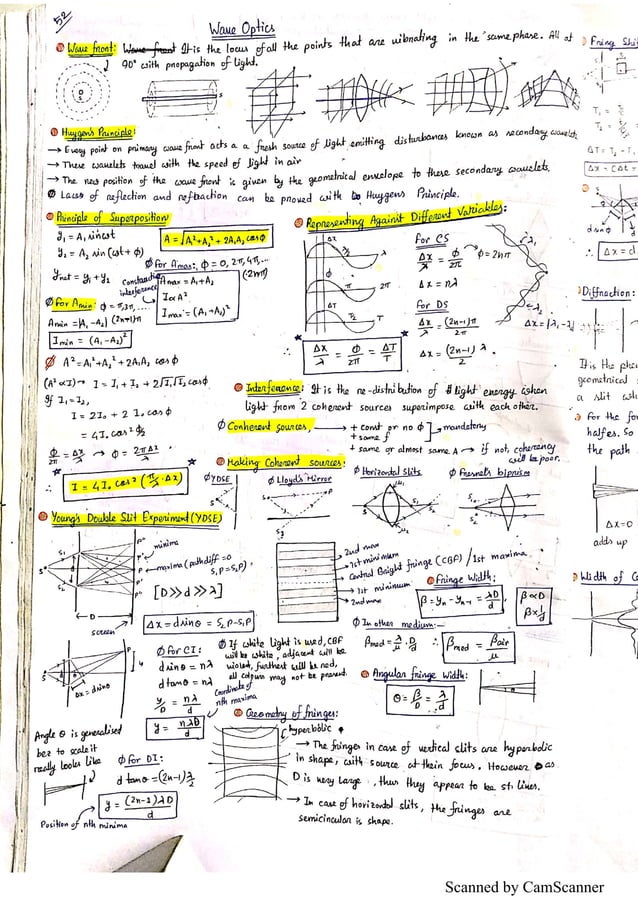 52
Wave Optics
Wave front: Wave front It is the locus of all the points that are vibrating in the same phase. All at
90° with propagation of light.
S
Huygen's Principle:
→ Every point on primary wave front acts a a fresh source of light emitting disturbances known as secondary wavelets
→ These wavelets travel with the speed of light in air
→ The new position of the wave front is given by the geometrical envelope to these secondary wavelets.
Ø Laws of reflection and refraction can be proved with Huygens Principle.
Principle of Superposition
y₁ = A₁ sinωt
y₂ = A₂ sin (ωt + φ)
y_net = y₁ + y₂
A = √A₁²+A₂²+2A₁A₂ cosφ
Ø for A_max: φ = 0, 2π, 4π...
(2nπ)
Constructive
interference
A_max = A₁+A₂
I ∝ A²
I_max = (A₁+A₂)²
Ø for A_min: φ = π, 3π, ...
(2n+1)π
A_min = |A₁-A₂|
I_min = (A₁-A₂)²
Ø A² = A₁²+A₂²+2A₁A₂ cosφ
(A²∝I) → I = I₁+I₂+2√I₁√I₂ cosφ
If I₁=I₂,
I = 2I₀ + 2 I₀ cosφ
= 4I₀ cos² φ/2
φ/2π = Δx/λ → φ = 2πΔx/λ
I = 4I₀ cos² (π/λ · Δx)
Representing Against Different Variables:
Δx λ/2 λ
φ π 2π
ΔT T/2 T
Δx/λ = φ/2π = ΔT/T
For CS
Δx/λ = φ/2π → φ = 2nπ
Δx = nλ
For DS
Δx/λ = (2n-1)π/2π
Δx = (2n-1) λ/2
λ₁
Δx = |λ₁-λ₂|
Interference: It is the re-distribution of light energy when
light from 2 coherent sources superimpose with each other.
Ø Conherent sources, → + const or no φ
+ same f
mandatory
+ same or almost same A → if not, coherency
will be poor.
Making Coherent sources:
Ø YDSE
Ø Lloyd's Mirror
Ø Horizontal Slits
Ø Fresnel's biprism
Young's Double Slit Experiment (YDSE)
minima
maxima (path diff = 0
S₁P = S₂P)
[D>>d>>λ]
D
screen
Δx = dsinθ = S₂P-S₁P
2nd max
1st minimum
Central Bright fringe (CBF) / 1st maxima
1st minimum
2nd max
Fringe Width:
β = yₙ - yₙ₋₁ = λD/d
β ∝ D
β ∝ 1/d
Ø In other medium:-
β_med = λ/μ · D/d
β_med = β_air/μ
Δx = dsinθ
Ø for CI:
d sinθ = nλ
d tanθ = nλ
y/D = nλ/d
y = nλD/d
Coordinate of
nth maxima
Ø If white light is used, CBF
will be white, adjacent will be
violet, furthest will be red,
all colours may not be present.
Angular fringe width:
θ = β/D = λ/d
Angle θ is generalised
bcz to scale it
really looks like
Ø for DI:
d tanθ = (2n-1) λ/2
y = (2n-1)λD/d
Position of nth minima
Geometry of fringes:
hyperbolic
→ The fringes in case of vertical slits are hyperbolic
in shape, with source at their focus. However as
D is very large, thus they appear to be st. lines.
→ In case of horizontal slits, the fringes are
semicircular is shape.
Fring Shi
ΔT = T₂ - T₁
Δx = d
Diffraction:
It is the phe
geometrical
a slit
For the
halfes. So
the path
Δx=0
adds up
Width of C
Scanned by CamScanner